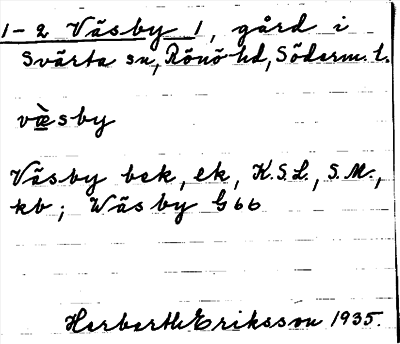 1-2 Väsby 1, gård i
Svärta sn, Rönö hd, Söderm. l.
væ̀sby
Väsby bek, ek, K.S.L., S.M.,
kb; Wäsby G66
Herberth Eriksson 1935.